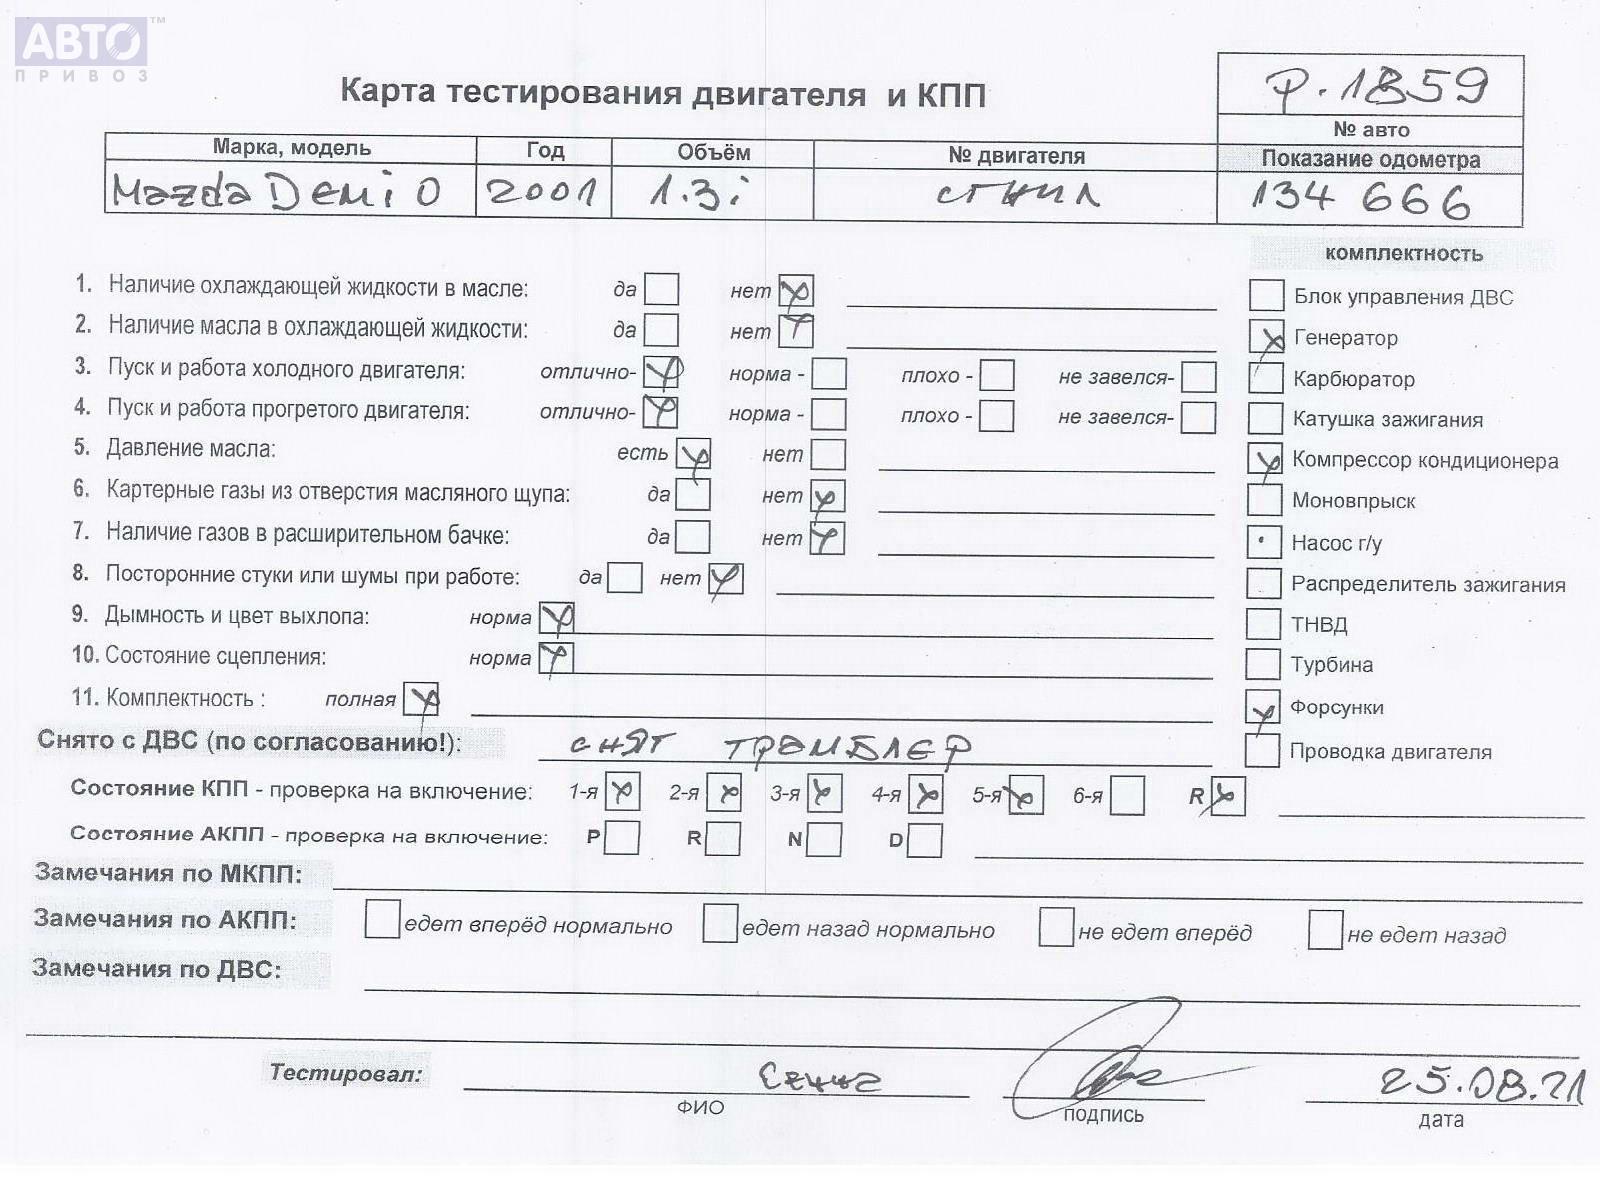 АВТО™
ПРИВОЗ
Карта тестирования двигателя и КПП
Р.1859
№ авто
Марка, модель Год Объём № двигателя Показание одометра
Mazda Demio 2001 1.3i сгнил 134 666
комплектность
1. Наличие охлаждающей жидкости в масле: да нет
Блок управления ДВС
2. Наличие масла в охлаждающей жидкости: да нет
Генератор
3. Пуск и работа холодного двигателя: отлично- норма - плохо - не завелся-
Карбюратор
4. Пуск и работа прогретого двигателя: отлично- норма - плохо - не завелся-
Катушка зажигания
5. Давление масла: есть нет
Компрессор кондиционера
6. Картерные газы из отверстия масляного щупа: да нет
Моновпрыск
7. Наличие газов в расширительном бачке: да нет
Насос г/у
8. Посторонние стуки или шумы при работе: да нет
Распределитель зажигания
9. Дымность и цвет выхлопа: норма
ТНВД
10. Состояние сцепления: норма
Турбина
11. Комплектность : полная
Форсунки
Снято с ДВС (по согласованию!): снят трамблер
Проводка двигателя
Состояние КПП - проверка на включение: 1-я 2-я 3-я 4-я 5-я 6-я R
Состояние АКПП - проверка на включение: P R N D
Замечания по МКПП:
Замечания по АКПП: едет вперёд нормально едет назад нормально не едет вперёд не едет назад
Замечания по ДВС:
Тестировал: 25.08.21
ФИО подпись дата